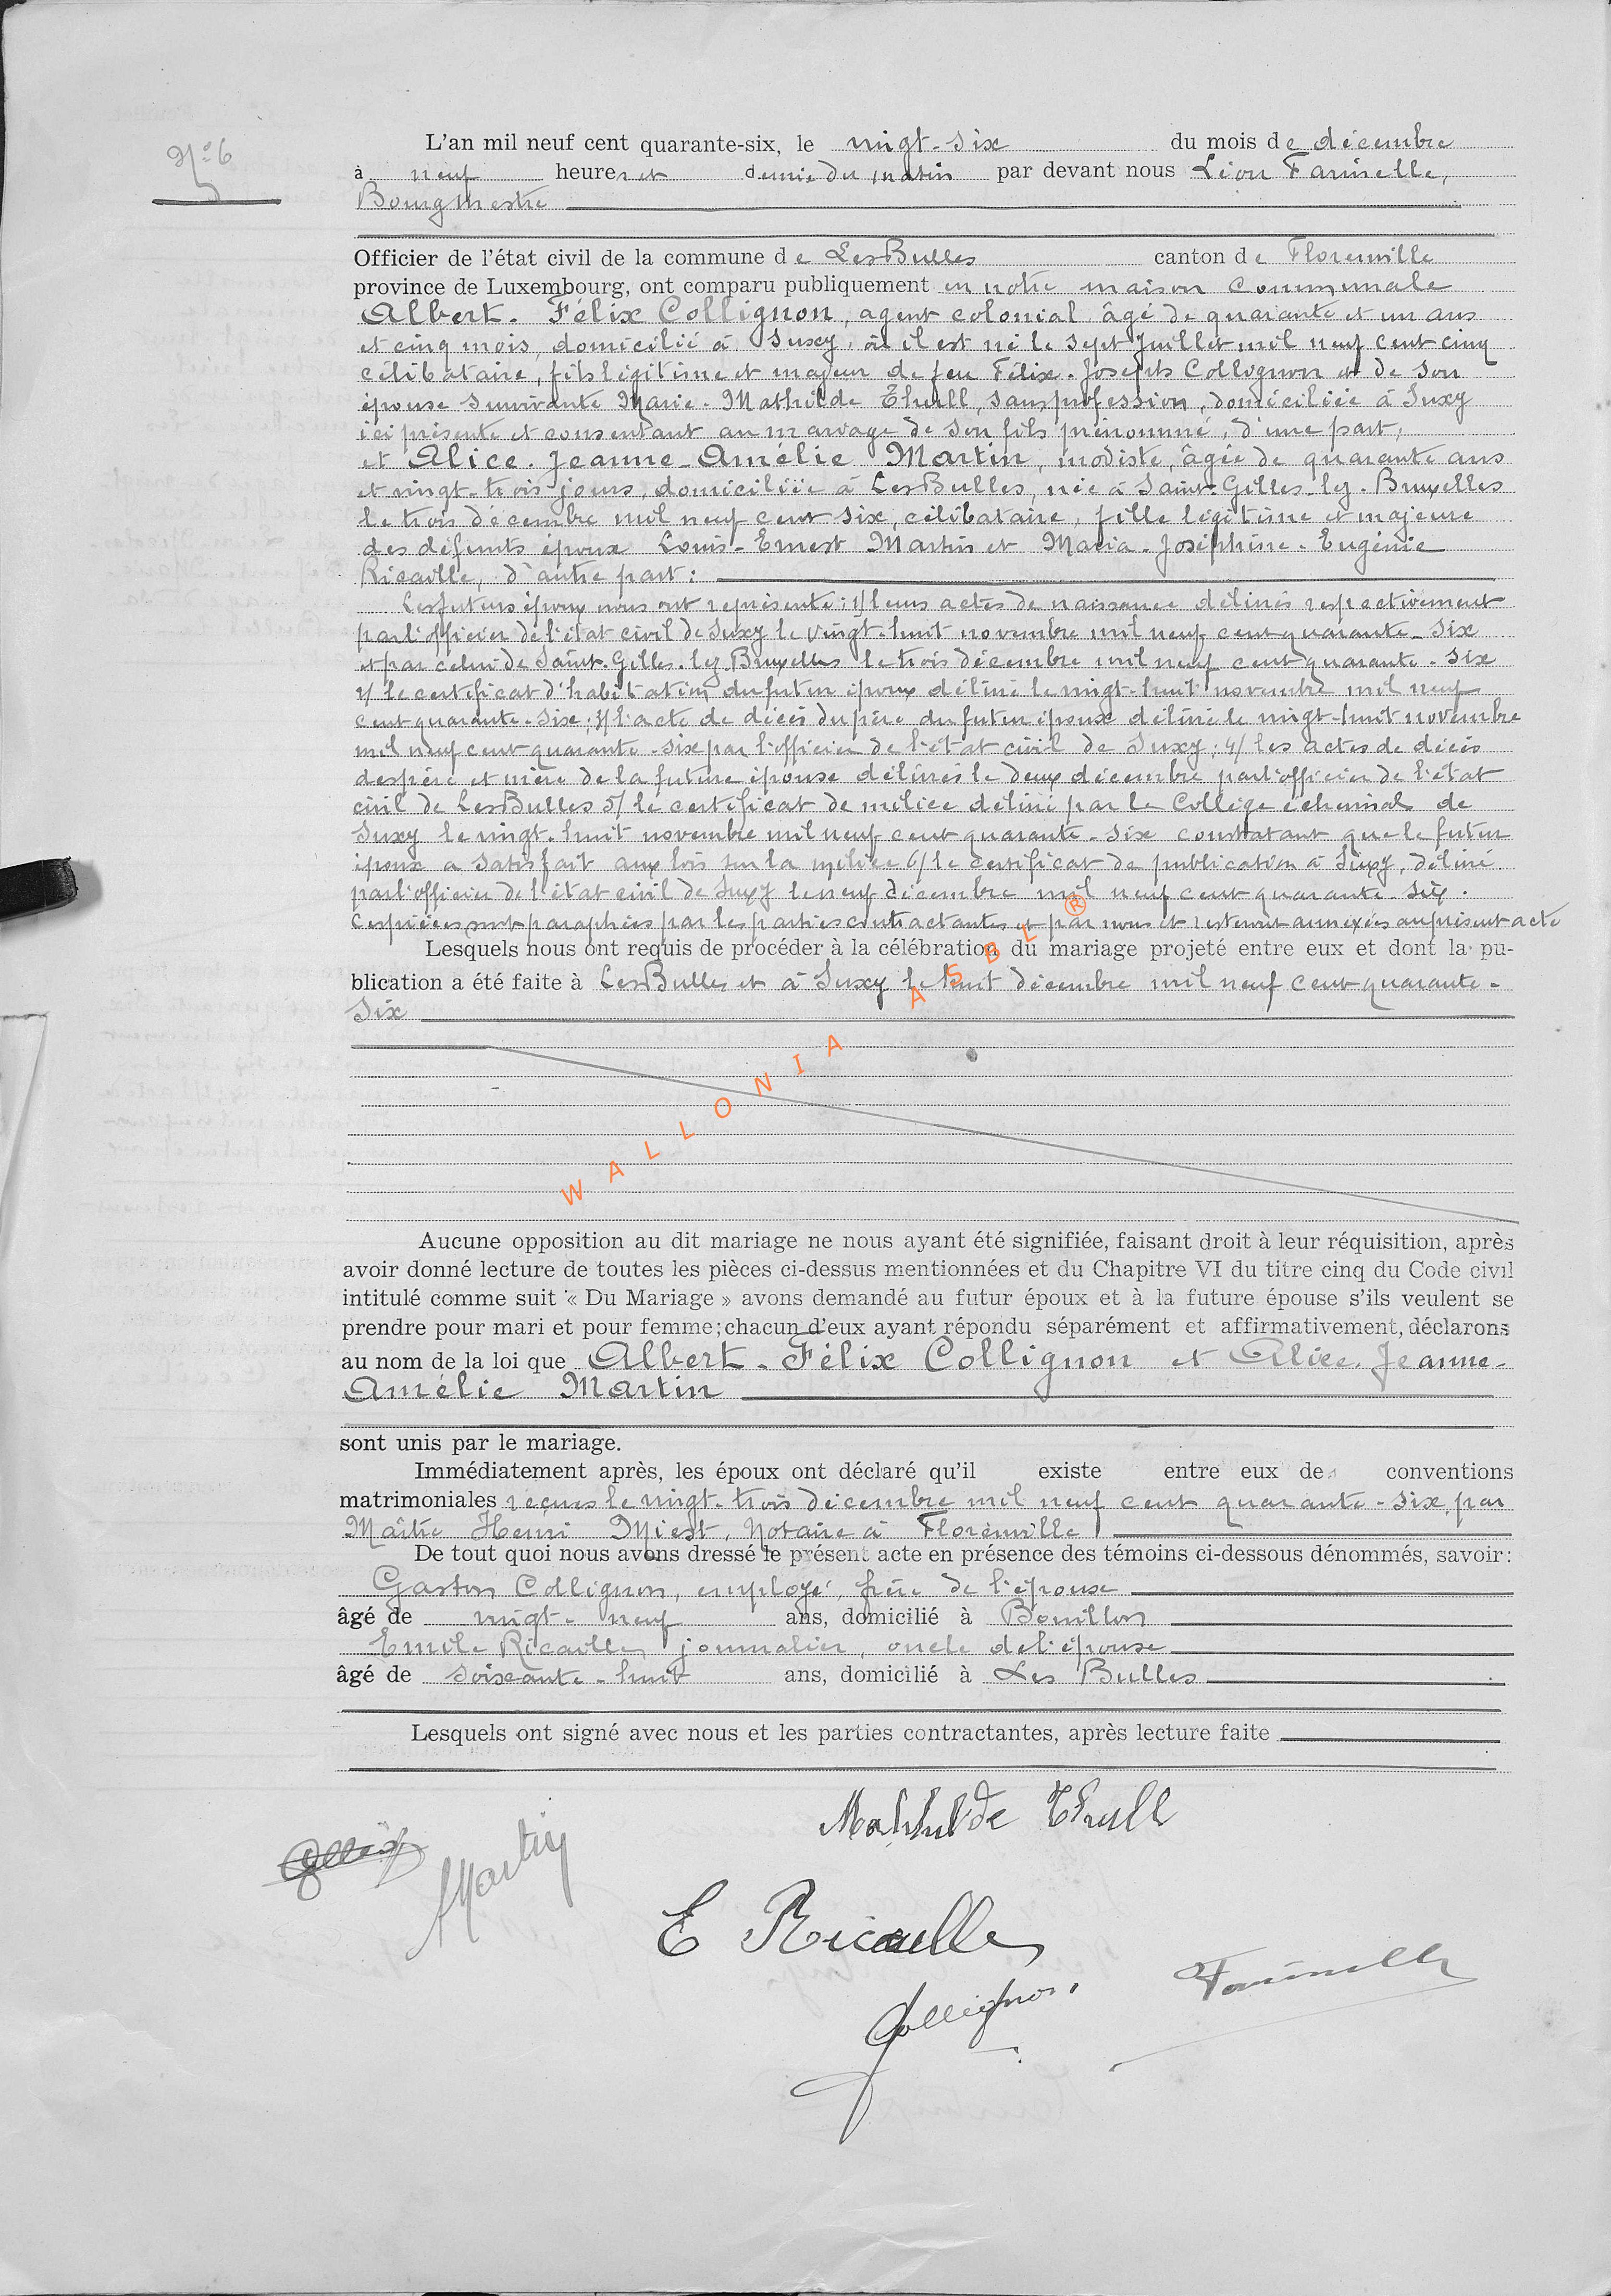 N° 6
L'an mil neuf cent quarante-six, le vingt-six du mois de décembre
à neuf heures et demie du matin par devant nous Léon Farinelle,
Bourgmestre
Officier de l'état civil de la commune de Les Bulles canton de Florenville
province de Luxembourg, ont comparu publiquement en notre maison communale
Albert-Félix Collignon, agent colonial âgé de quarante et un ans
et cinq mois, domicilié à Suxy, où il est né le sept Juillet mil neuf cent cinq
célibataire, fils légitime et majeur de feu Félix-Joseph Collognon et de son
épouse survivante Marie-Mathilde Thull, sans profession, domiciliée à Suxy
ici présente et consentant au mariage de son fils prénommé, d'une part,
et Alice-Jeanne-Amélie Martin, modiste, âgée de quarante ans
et vingt-trois jours, domiciliée à Les Bulles, née à Saint-Gilles-lez-Bruxelles
le trois décembre mil neuf cent six, célibataire, fille légitime et majeure
des défunts époux Louis-Ernest Martin et Maria-Joséphine-Eugénie
Ricaille, d'autre part :
Les futurs époux nous ont représenté : 1/ leurs actes de naissance délivrés respectivement
par l'officier de l'état civil de Suxy le vingt-huit novembre mil neuf cent quarante-six
et par celui de Saint-Gilles-lez-Bruxelles le trois décembre mil neuf cent quarante-six
2/ le certificat d'habitation du futur époux délivré le vingt-huit novembre mil neuf
cent quarante-six ; 3/ l'acte de décès du père du futur époux délivré le vingt-huit novembre
mil neuf cent quarante-six par l'officier de l'état civil de Suxy ; 4/ les actes de décès
des père et mère de la future épouse délivrés le deux décembre par l'officier de l'état
civil de Les Bulles 5/ le certificat de milice délivré par le Collège échevinal de
Suxy le vingt-huit novembre mil neuf cent quarante-six constatant que le futur
époux a satisfait aux lois sur la milice 6/ le certificat de publication à Suxy, délivré
par l'officier de l'état civil de Suxy le neuf décembre mil neuf cent quarante-six.
Ces pièces sont paraphées par les parties contractantes et par nous et resteront annexées au présent acte
Lesquels nous ont requis de procéder à la célébration du mariage projeté entre eux et dont la pu-
blication a été faite à Les Bulles et à Suxy le huit décembre mil neuf cent quarante-
six
WALLONIA ASBL ®
Aucune opposition au dit mariage ne nous ayant été signifiée, faisant droit à leur réquisition, après
avoir donné lecture de toutes les pièces ci-dessus mentionnées et du Chapitre VI du titre cinq du Code civil
intitulé comme suit « Du Mariage » avons demandé au futur époux et à la future épouse s'ils veulent se
prendre pour mari et pour femme; chacun d'eux ayant répondu séparément et affirmativement, déclarons
au nom de la loi que Albert-Félix Collignon et Alice-Jeanne-
Amélie Martin
sont unis par le mariage.
Immédiatement après, les époux ont déclaré qu'il existe entre eux des conventions
matrimoniales reçues le vingt-trois décembre mil neuf cent quarante-six, par
Maître Henri Miest, Notaire à Florenville
De tout quoi nous avons dressé le présent acte en présence des témoins ci-dessous dénommés, savoir :
Gaston Collignon, employé, frère de l'épouse
âgé de vingt-neuf ans, domicilié à Bouillon
Emile Ricaille, journalier, oncle de l'épouse
âgé de soixante-huit ans, domicilié à Les Bulles
Lesquels ont signé avec nous et les parties contractantes, après lecture faite
Mathilde Thull
AMartin
E Ricaille
Collignon
Farinelle